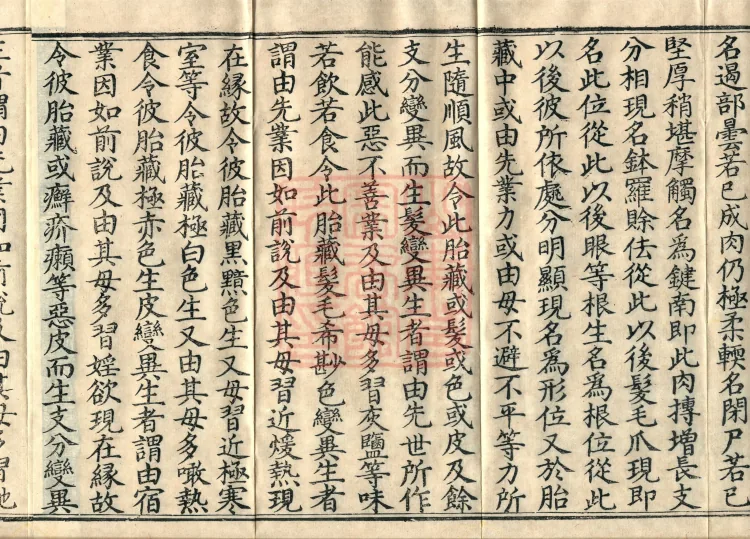 名遏部曇若已成肉仍極柔輭名閉尸若已
堅厚稍堪摩觸名為鍵南即此肉摶增長支
分相現名鉢羅賒佉從此以後髮毛爪現即
名此位從此以後眼等根生名為根位從此
以後彼所依處分明顯現名為形位又於胎
藏中或由先業力或由母不避不平等力所
生隨順風故令此胎藏或髮或色或皮及餘
支分變異而生髮變異生者謂由先世所作
能感此惡不善業及由其母多習灰鹽等味
若飲若食令此胎藏髮毛希尠色變異生者
謂由先業因如前說及由其母習近煖熱現
在緣故令彼胎藏黑黶色生又母習近極寒
室等令彼胎藏極白色生又由其母多噉熱
食令彼胎藏極赤色生皮變異生者謂由宿
業因如前說及由其母多習婬欲現在緣故
令彼胎藏或癬疥癩等惡皮而生支分變異